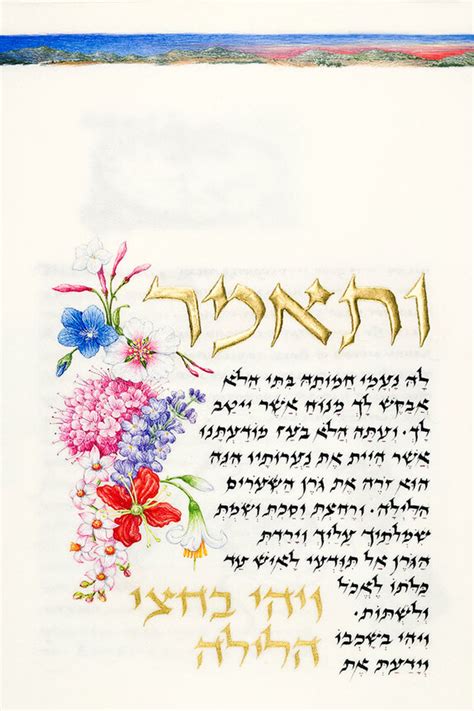 ותאמר
לה נעמי חמותה בתי הלא
אבקש לך מנוח אשר ייטב
לך. ועתה הלא בעז מודעתנו
אשר היית את נערותיו הנה
הוא זרה את גרן השערים
הלילה. ורחצת וסכת ושמת
שמלתיך עליך וירדת
הגרן אל תודעי לאיש עד
כלתו לאכל
ולשתות.
ויהי בשכבו
וידעת את
ויהי בחצי
הלילה